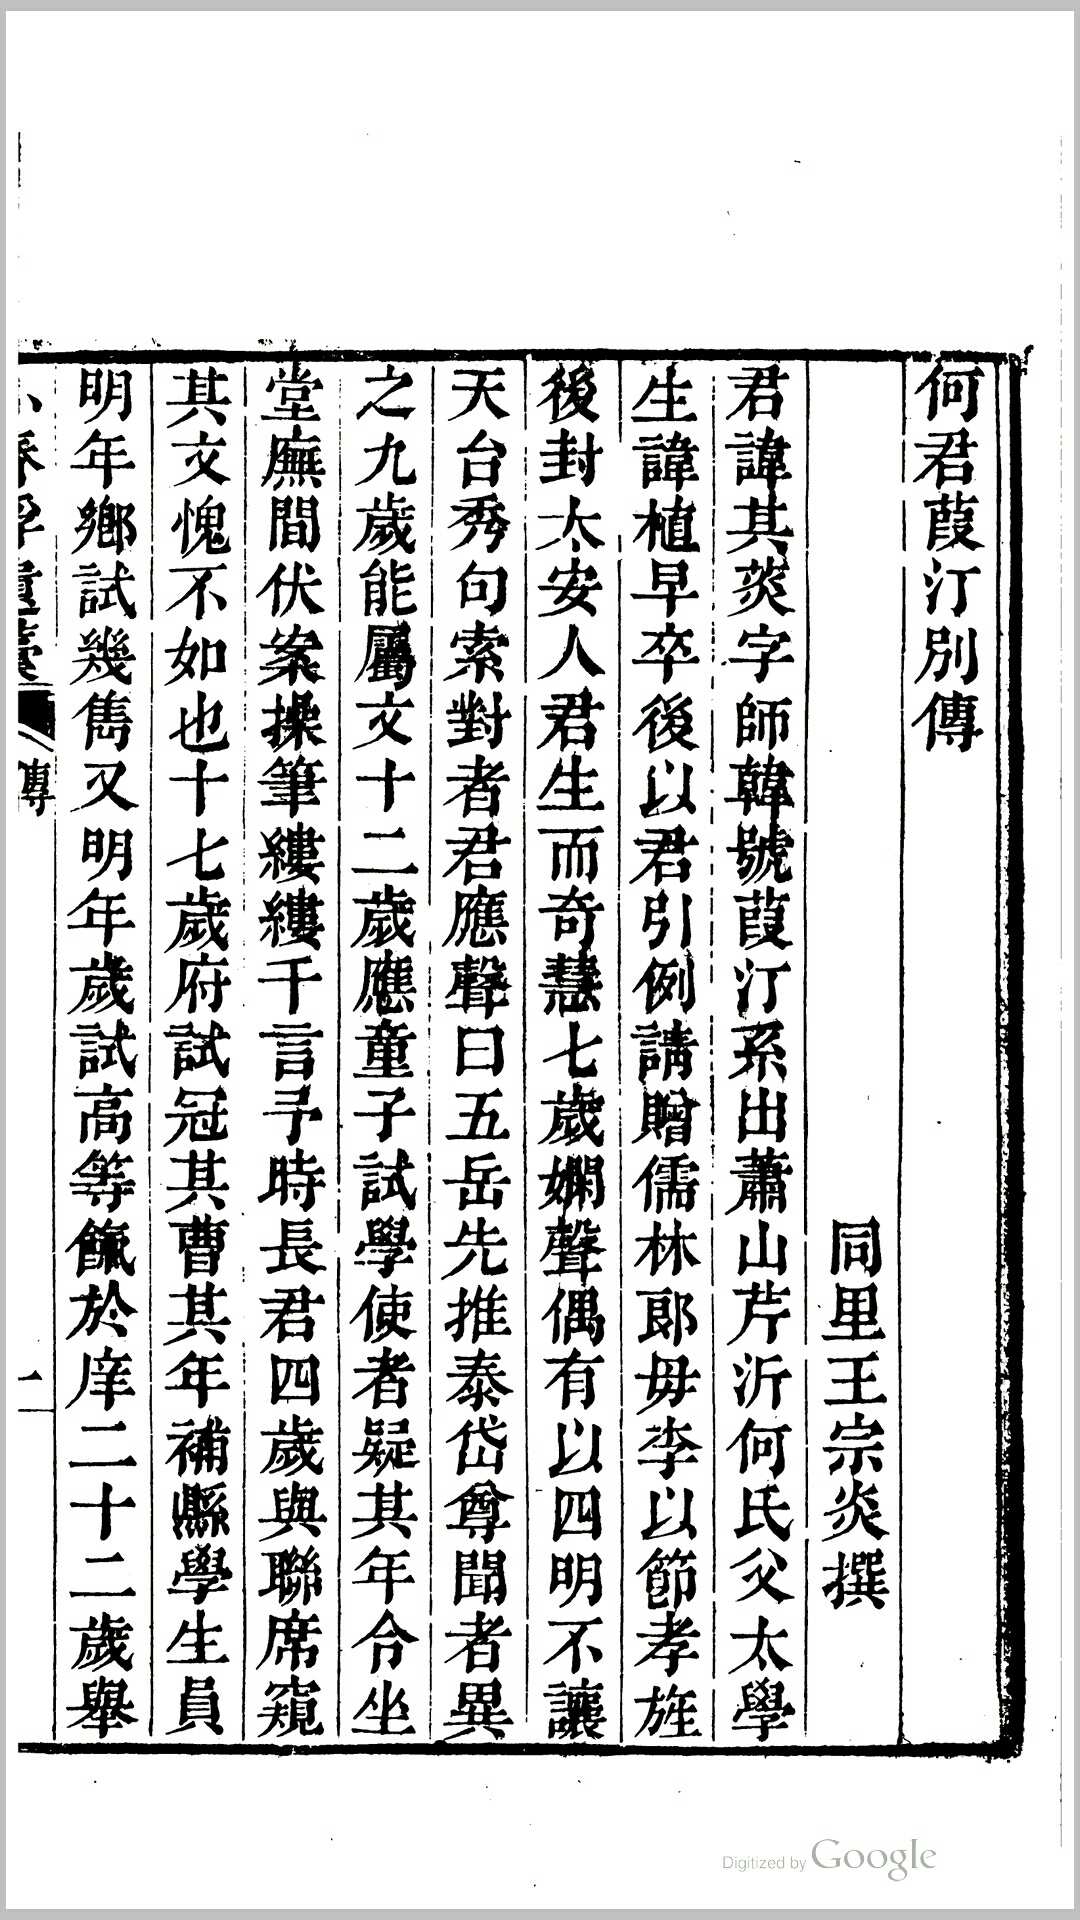 何君葭汀別傳
同里王宗炎撰
君諱其菼字師韓號葭汀系出蕭山芹沂何氏父太學
生諱植早卒後以君引例請贈儒林郎毋李以節孝旌
後封太安人君生而奇慧七歲嫻聲偶有以四明不讓
天台秀句索對者君應聲曰五岳先推泰岱尊聞者異
之九歲能屬文十二歲應童子試學使者疑其年令坐
堂廡間伏案操筆縷縷千言予時長君四歲與聯席窺
其文愧不如也十七歲府試冠其曹其年補縣學生員
明年鄉試幾雋又明年歲試高等餼於庠二十二歲舉
傳
二
Digitized by Google